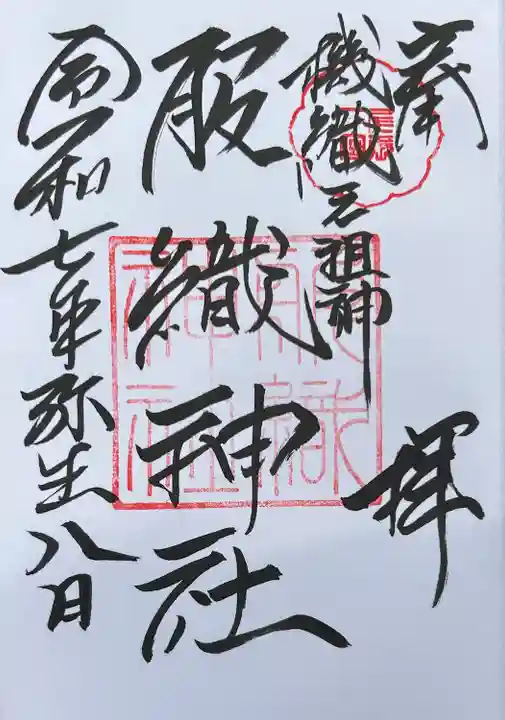 奉拝
機織元祖神
服織神社
令和七年弥生八日
服織神社